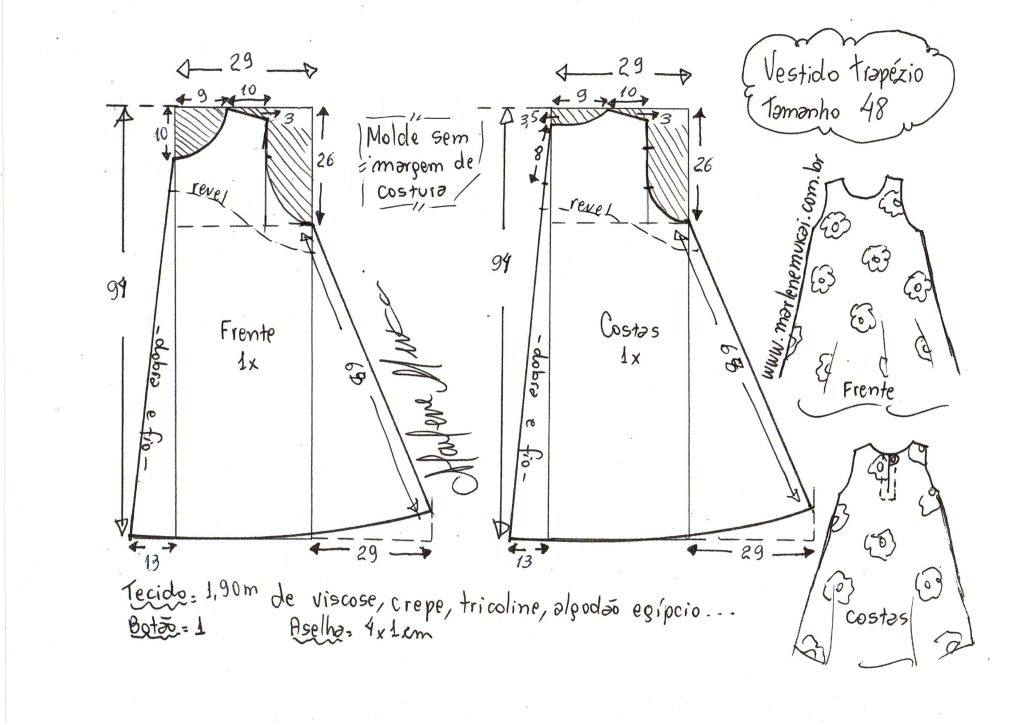 29
9
10
3
10
26
revel
94
Frente
1x
-dobra e fio-
69
13
29
Molde sem
margem de
costura
Marlene Mukai
29
9
10
3,5
3
8
26
revel
94
Costas
1x
-dobra e fio-
69
13
29
Vestido trapézio
Tamanho 48
www.marlenemukai.com.br
Frente
Costas
Tecido= 1,90m de viscose, crepe, tricoline, algodão egípcio...
Botão= 1 Aselha= 4x1cm